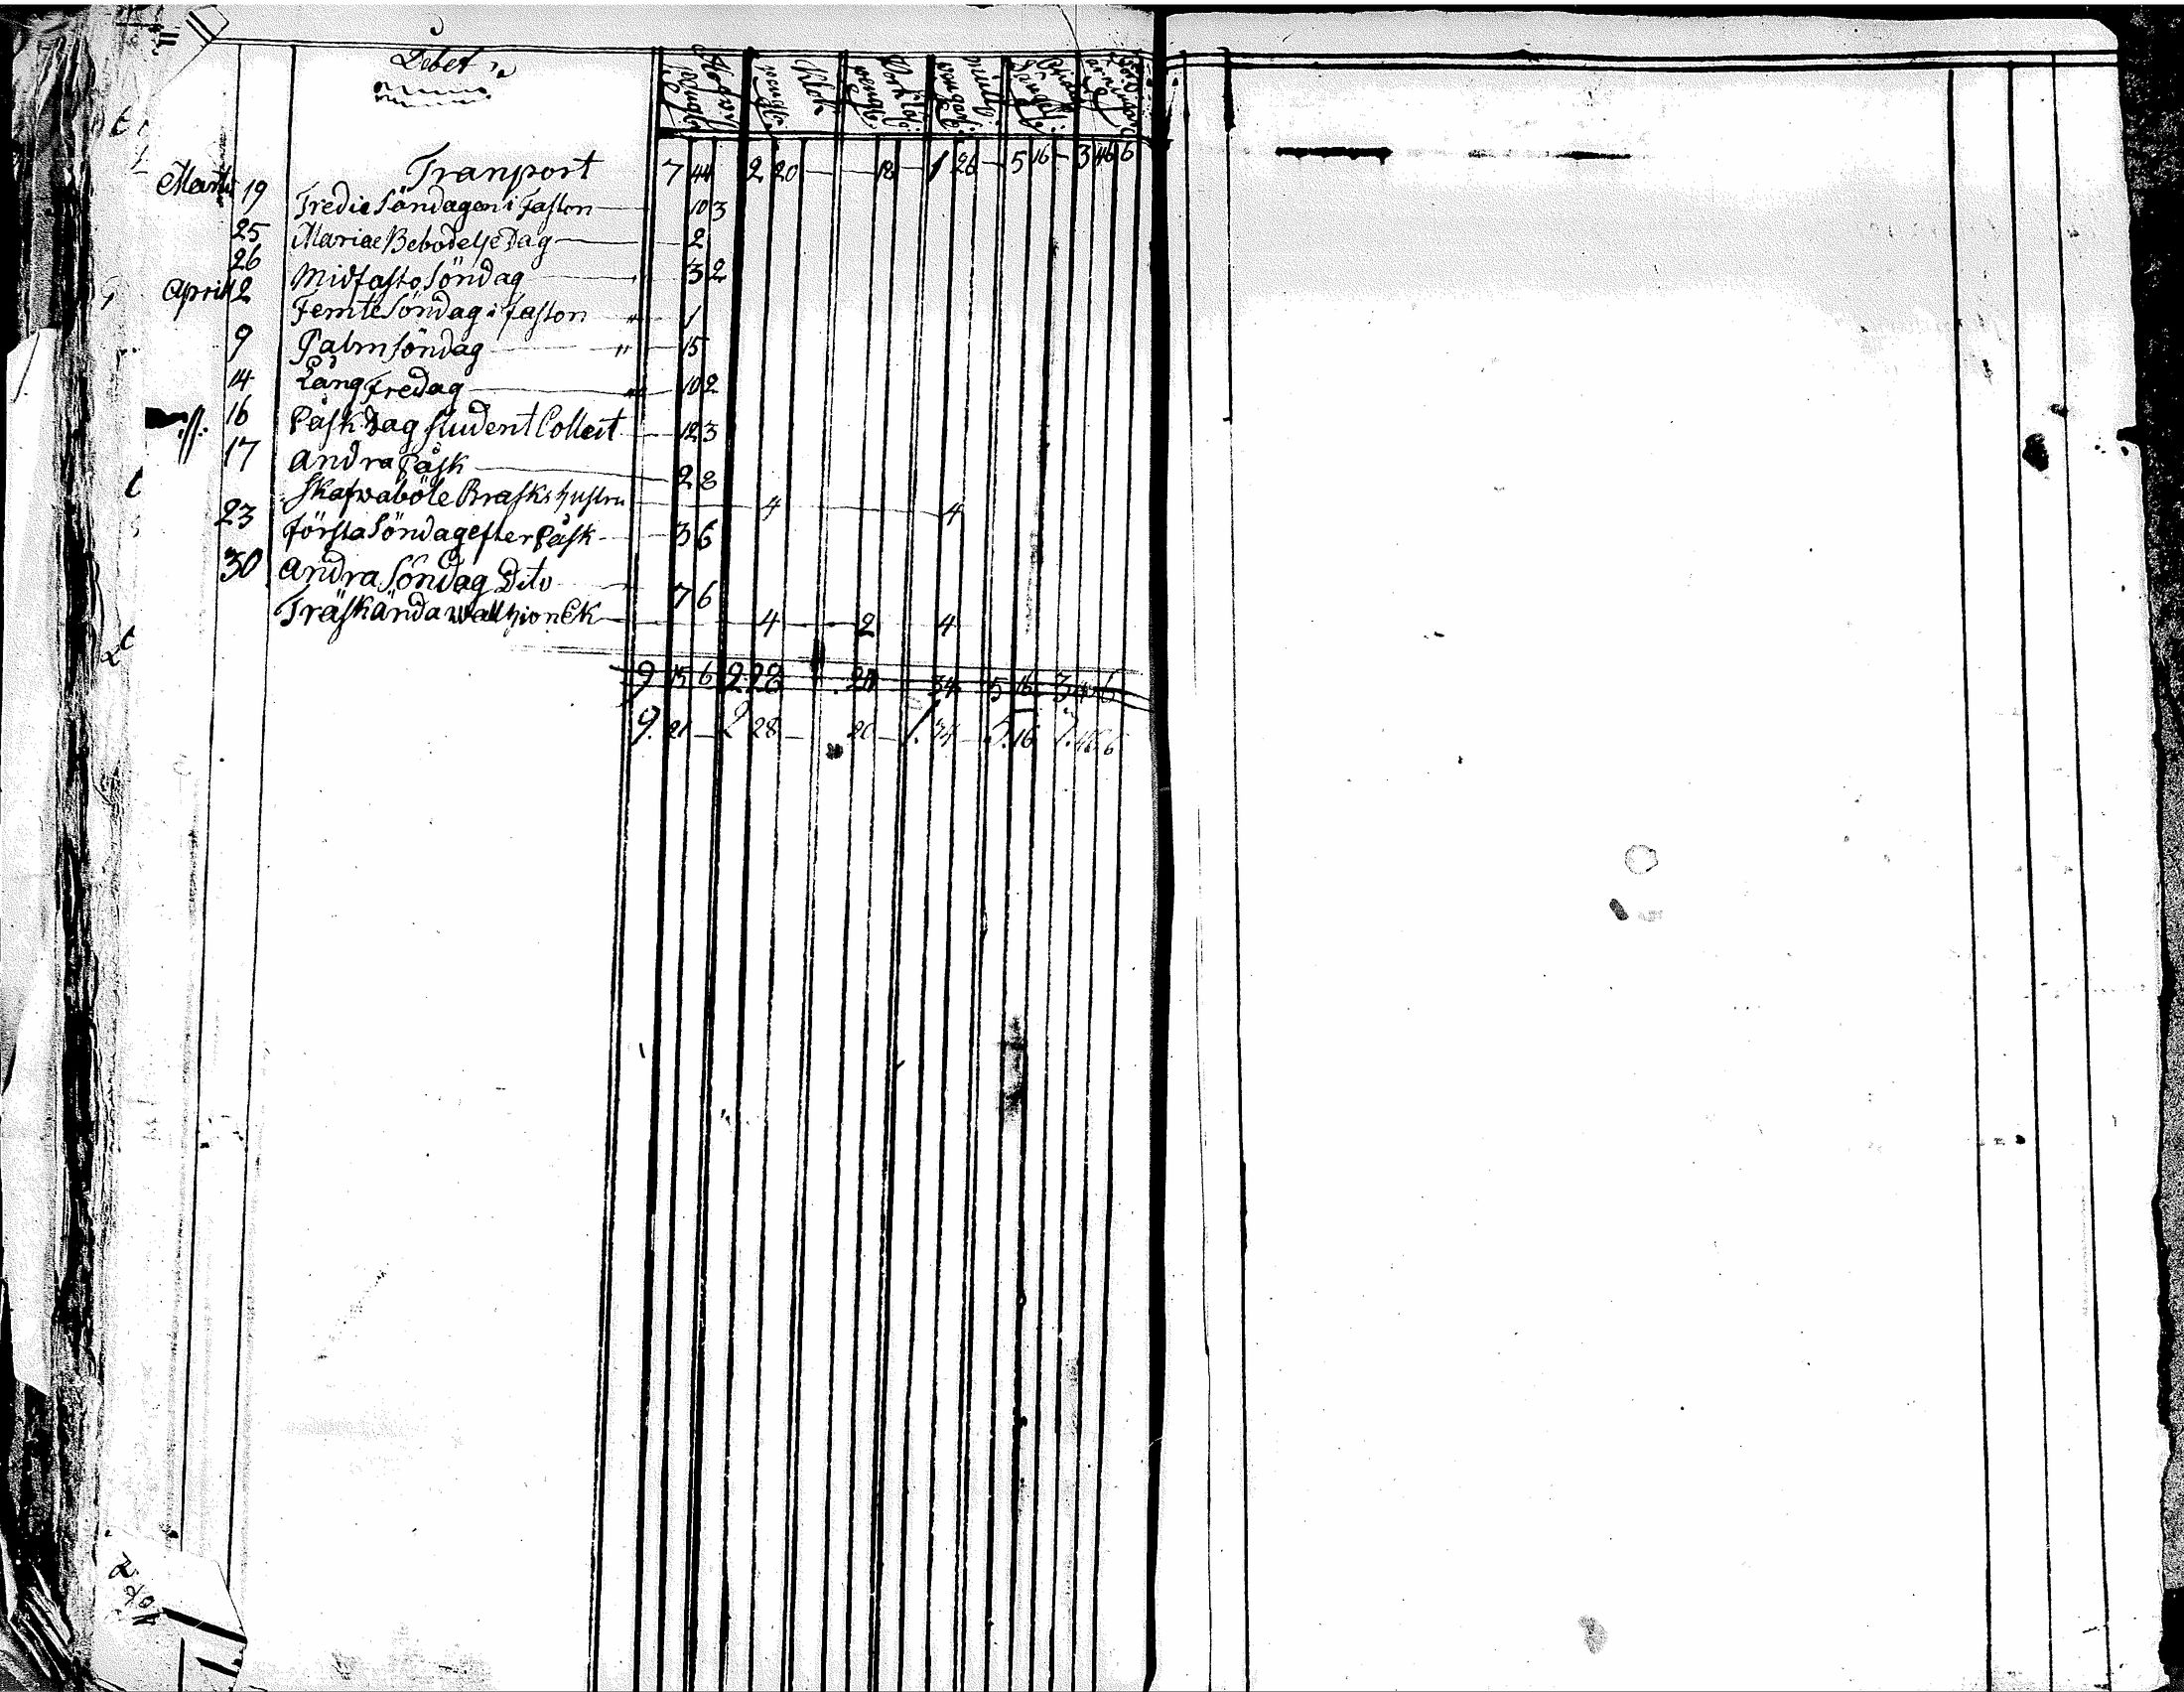 Debet
Transport 7 44 2 20 — — 18 — 1 26 — 5 16 — 3 46 6
Martii 19 Tredie Söndagen i Faston — 10 3
25 Mariae Bebodelse Dag — 2
26 Midfasto Söndag — 3 2
April 2 Femte Söndag i faston " — 1
9 Palm Söndag — " — 15
14 Lång Fredag — " — 10 2
16 Påsk Dag Student Collect — 12 3
17 andra Påsk — 2 8
Skafwaböle Brasks hustru — 4 — 4
23 första Söndag efter Påsk — 3 6
30 andra Söndag Dito — 7 6
Träskända — 4 — 2 4
9 15 6 2 28 20 34 5 16 3 46 6
9. 21 — 2 28 — 20 — 1. 34 — 5. 16 3. 46 6